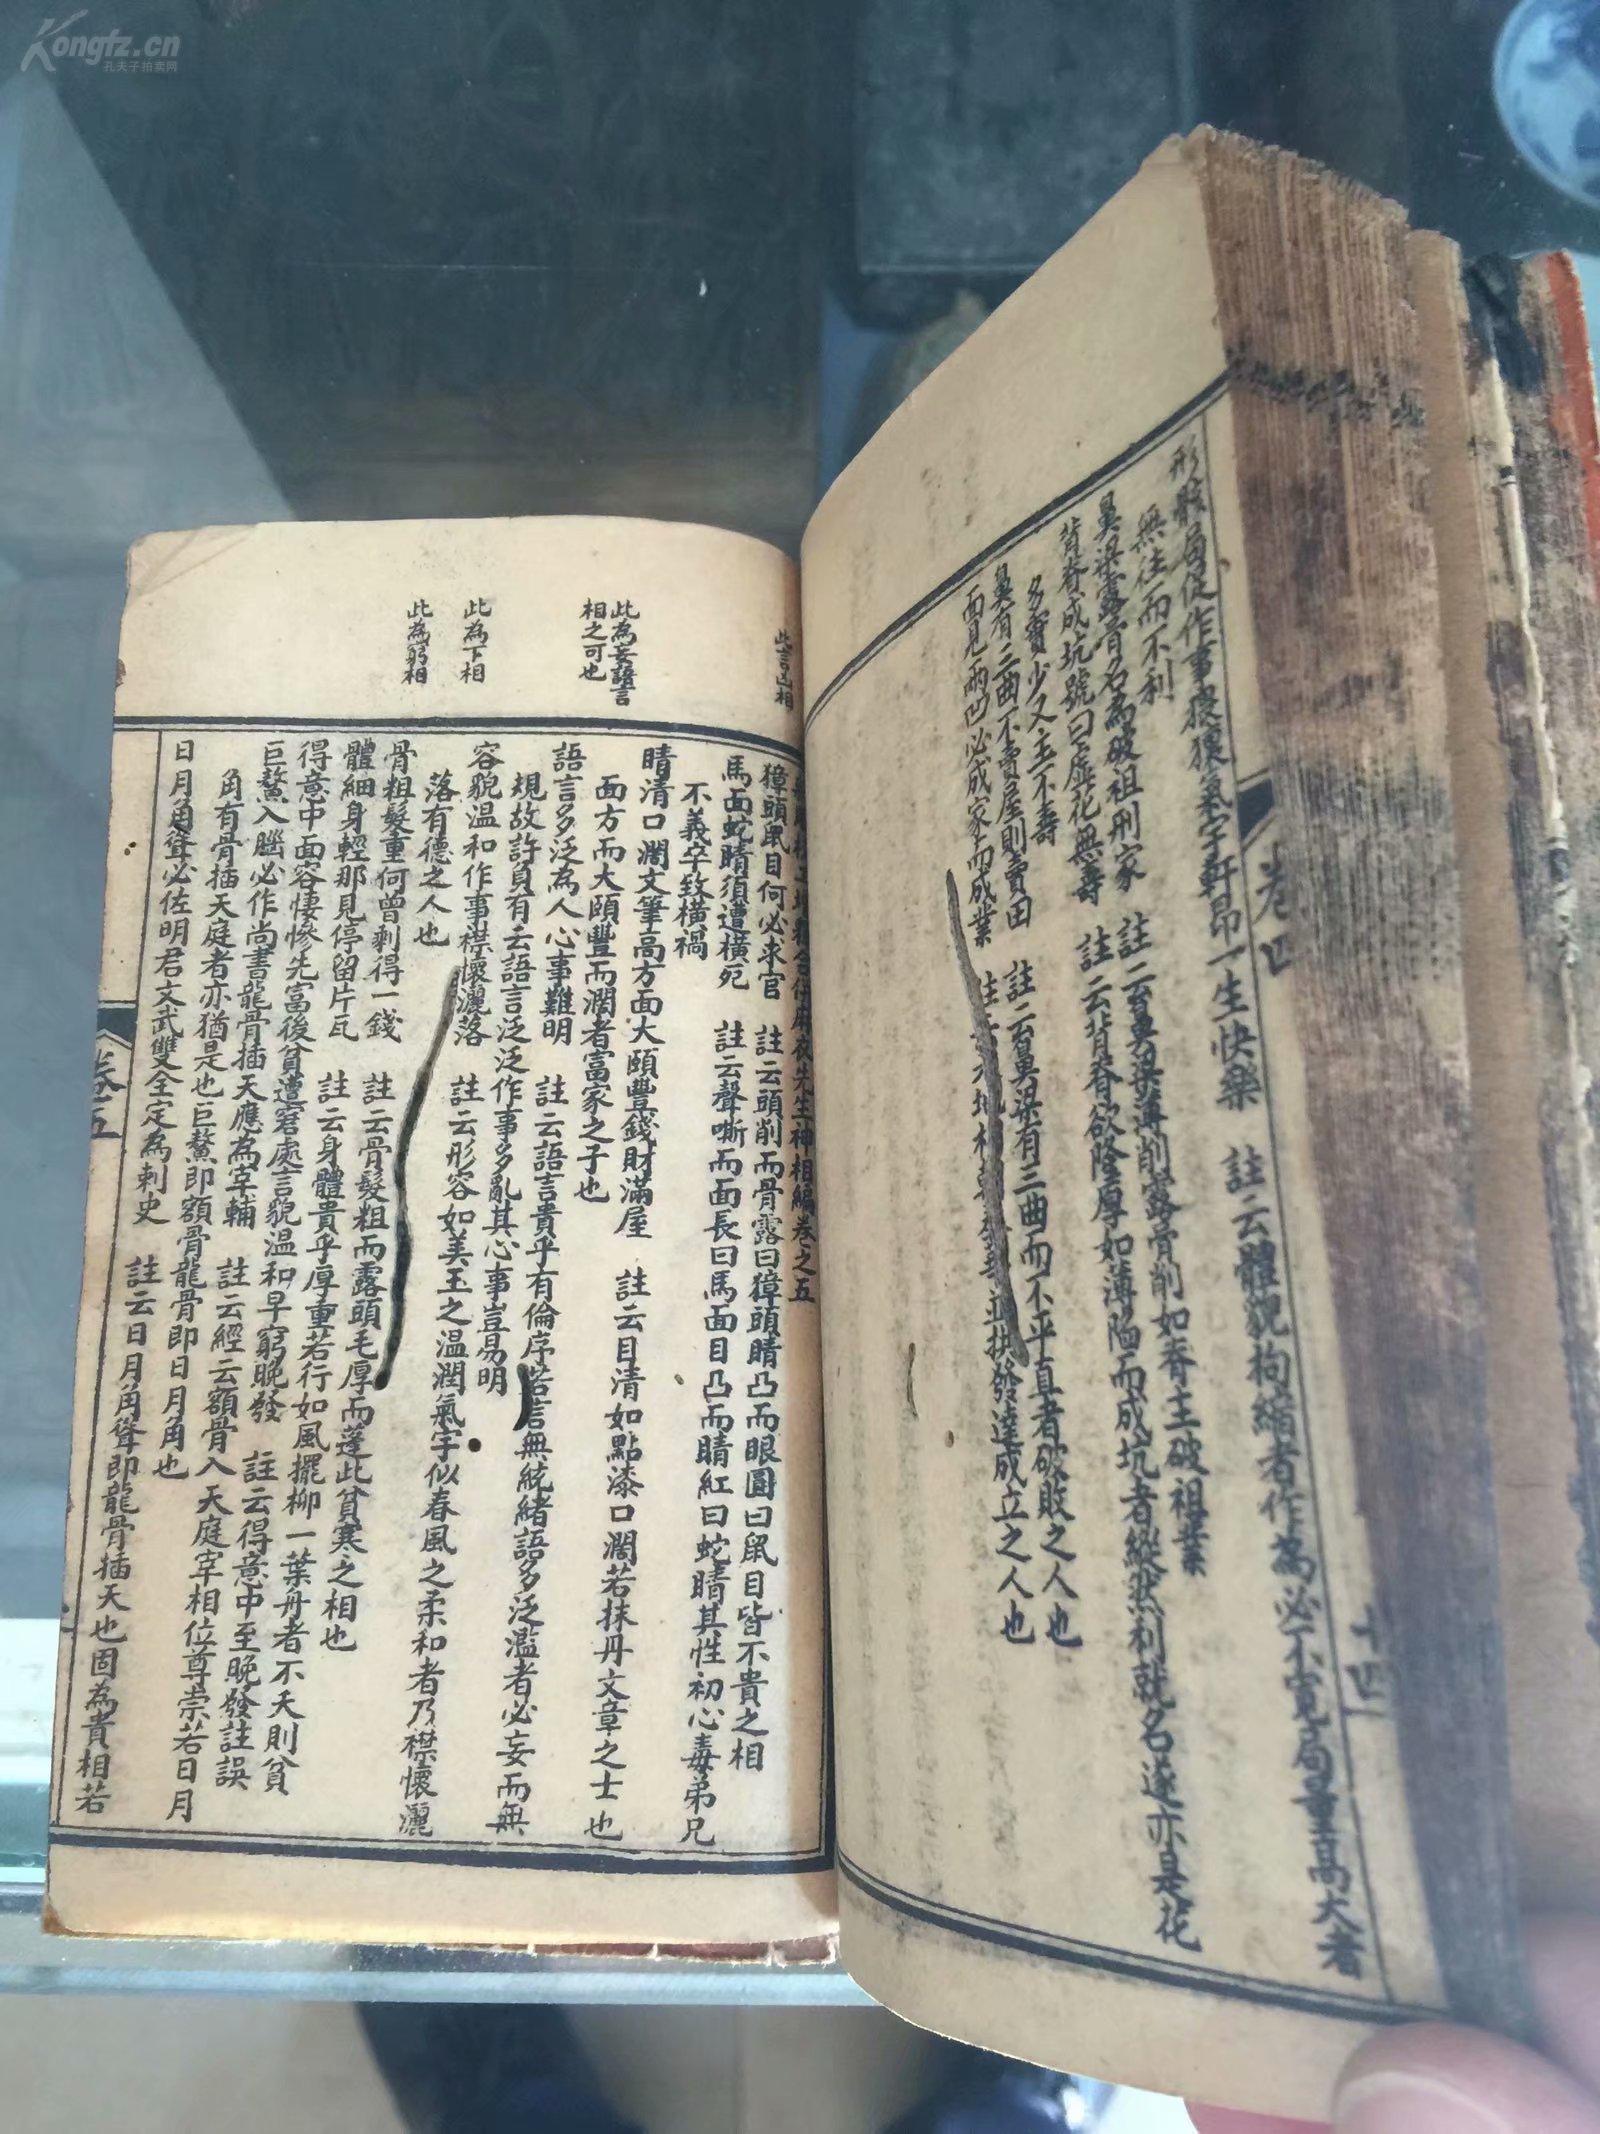 Kongfz.cn
孔夫子拍卖网
形骸局促作事猥獕氣宇軒昂一生快樂 註云體貌拘縮者作為必不寬局量高大者
無往而不利
鼻梁露骨名為破祖刑家 註云鼻梁薄削露骨削如脊主破祖業
背脊成坑號曰虛花無壽 註云背脊欲隆厚如薄陷而成坑者縱然利就名遂亦是花
多實少又主不壽
鼻有三曲不賣屋則賣田 註云鼻梁有三曲而不平直者破敗之人也
面見兩凹必成家而成業 拱發達成立之人也
卷四
十四
此為妄語言
相之可也
此為下相
此為窮相
麻衣先生神相編卷之五
獐頭鼠目何必求官 註云頭削而骨露曰獐頭睛凸而眼圓曰鼠目皆不貴之相
馬面蛇睛須遭橫死 註云聲嘶而面長曰馬面目凸而睛紅曰蛇睛其性初心毒弟兄
不義卒致橫禍
睛清口濶文筆高方面大頤豐錢財滿屋 註云目清如點漆口濶若抹丹文章之士也
面方而大頤豐而濶者富家之子也
語言多泛為人心事難明 註云語言貴乎有倫序若言無統緒語多泛濫者必妄而無
規故許負有云語言泛泛作事多亂其心事豈易明
容貌溫和作事襟懷灑落 註云形容如美玉之溫潤氣宇似春風之柔和者乃襟懷灑
落有德之人也
骨粗髮重何曾剩得一錢 註云骨髮粗而露頭毛厚而蓬此貧寒之相也
體細身輕那見停留片瓦 註云身體貴乎厚重若行如風擺柳一葉舟者不夭則貧
得意中面容悽慘先富後貧遭窘處言貌溫和早窮晚發 註云得意中至晚發註誤
巨鰲入腦必作尚書龍骨插天應為宰輔 註云經云額骨入天庭宰相位尊崇若日月
角有骨插天庭者亦猶是也巨鰲即額骨龍骨即日月角也
日月角聳必佐明君文武雙全定為剌史 註云日月角聳即龍骨插天也固為貴相若
卷五